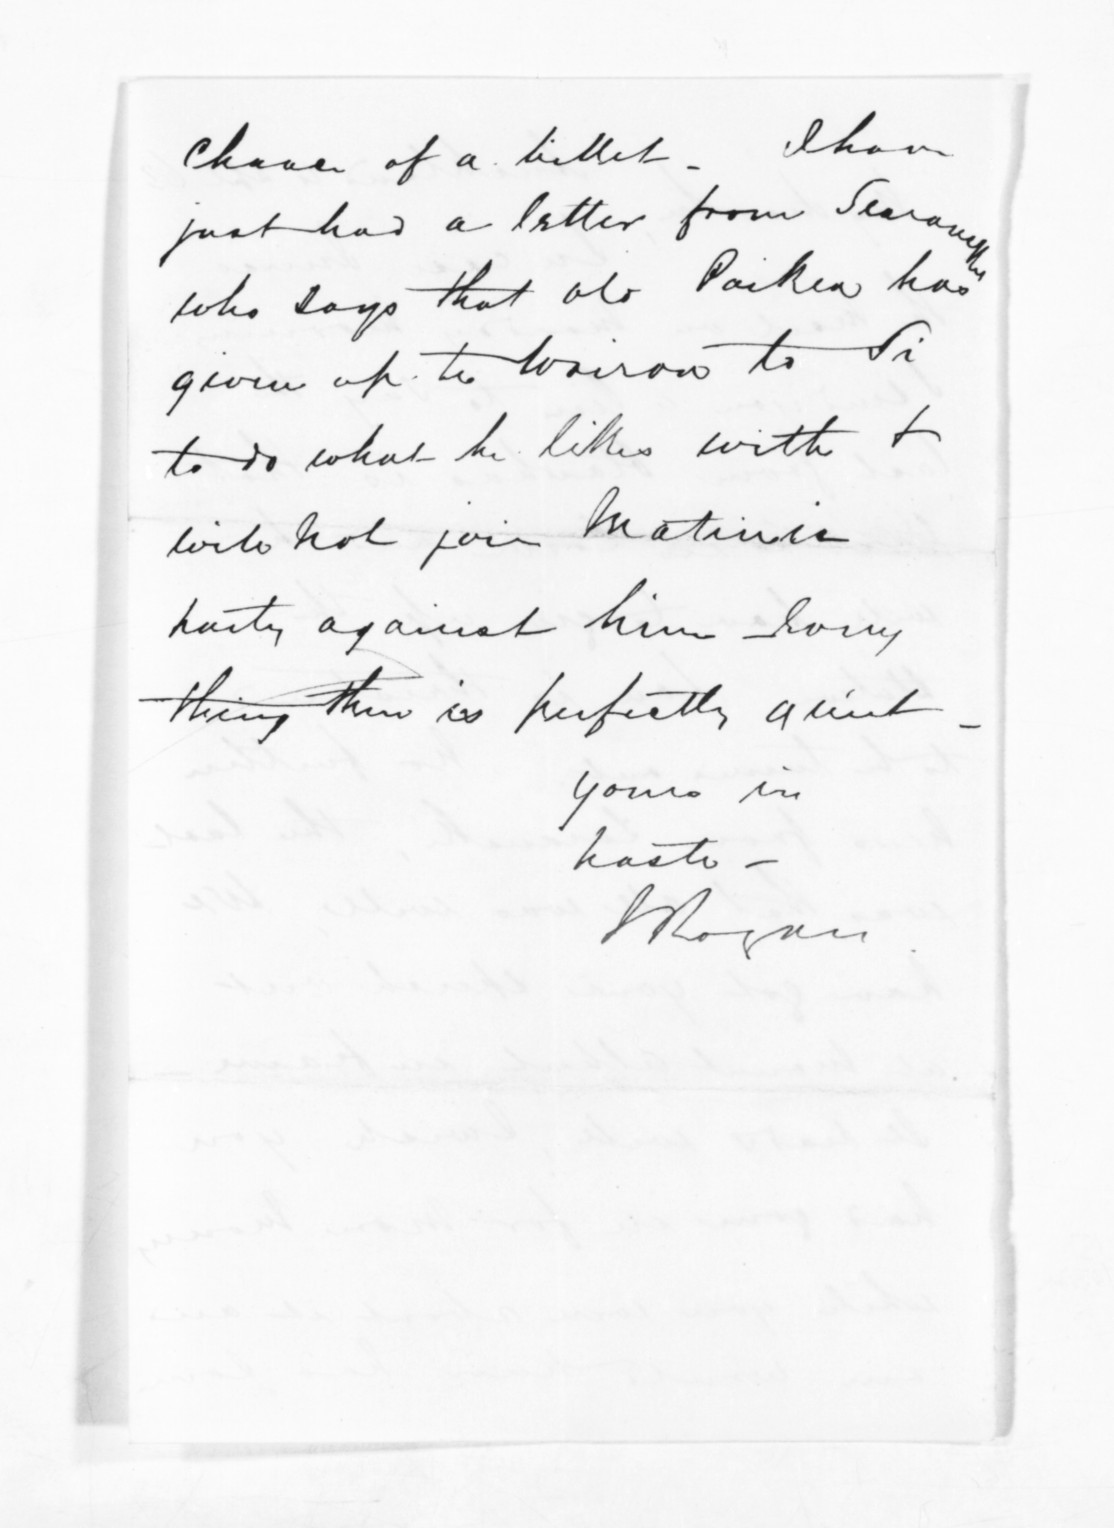 chance of a billet - I have
just had a letter from Searancke
who says that old Paikea has
given up the Wairoa to Ti
to do what he likes with &
will not join Matini's
party against him - Every
thing there is perfectly quiet -
Yours in
haste -
J Rogan